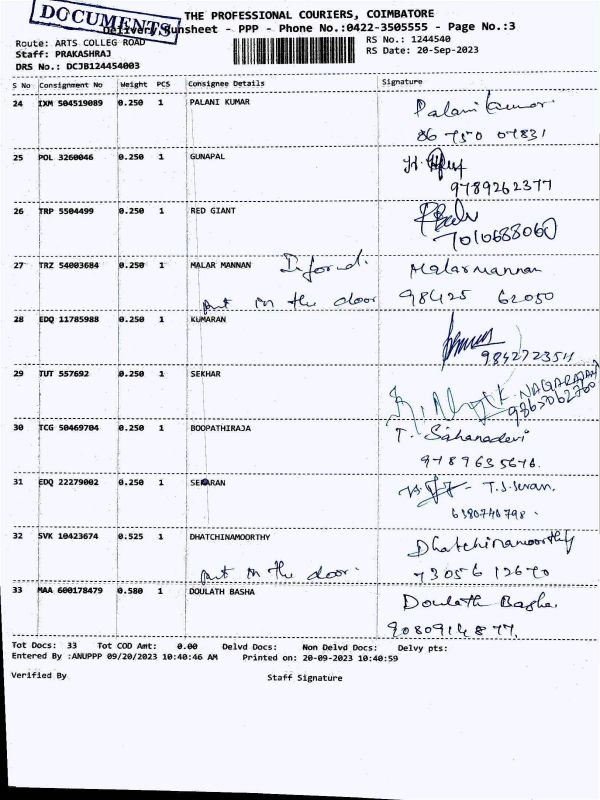 DOCUMENTS
THE PROFESSIONAL COURIERS, COIMBATORE
Delivery Runsheet - PPP - Phone No.:0422-3505555 - Page No.:3
Route: ARTS COLLEG ROAD
RS No.: 1244540
Staff: PRAKASHRAJ
RS Date: 20-Sep-2023
DRS No.: DCJB124454003
S No Consignment No Weight PCS Consignee Details Signature
24 IXM 504519089 0.250 1 PALANI KUMAR Palani Kumar
86 750 07831
25 POL 3260046 0.250 1 GUNAPAL
9789262377
26 TRP 5504499 0.250 1 RED GIANT
7010688060
27 TRZ 54003684 0.250 1 MALAR MANNAN Inford. Malarmannan
put in the door 98425 62050
28 EDQ 11785988 0.250 1 KUMARAN
984272354
29 TUT 557692 0.250 1 SEKHAR K. NAGARAJAN
9865062760
30 TCG 50469704 0.250 1 BOOPATHIRAJA T. Sahanadevi
9789635676.
31 EDQ 22279002 0.250 1 SEKARAN - T.J.
6380740798.
32 SVK 10423674 0.525 1 DHATCHINAMOORTHY Dhatchinamoorthy
put in the door. 73056 12670
33 MAA 600178479 0.580 1 DOULATH BASHA Doulath Basha.
9080914877.
Tot Docs: 33 Tot COD Amt: 0.00 Delvd Docs: Non Delvd Docs: Delvy pts:
Entered By :ANUPPP 09/20/2023 10:40:46 AM Printed on: 20-09-2023 10:40:59
Verified By Staff Signature